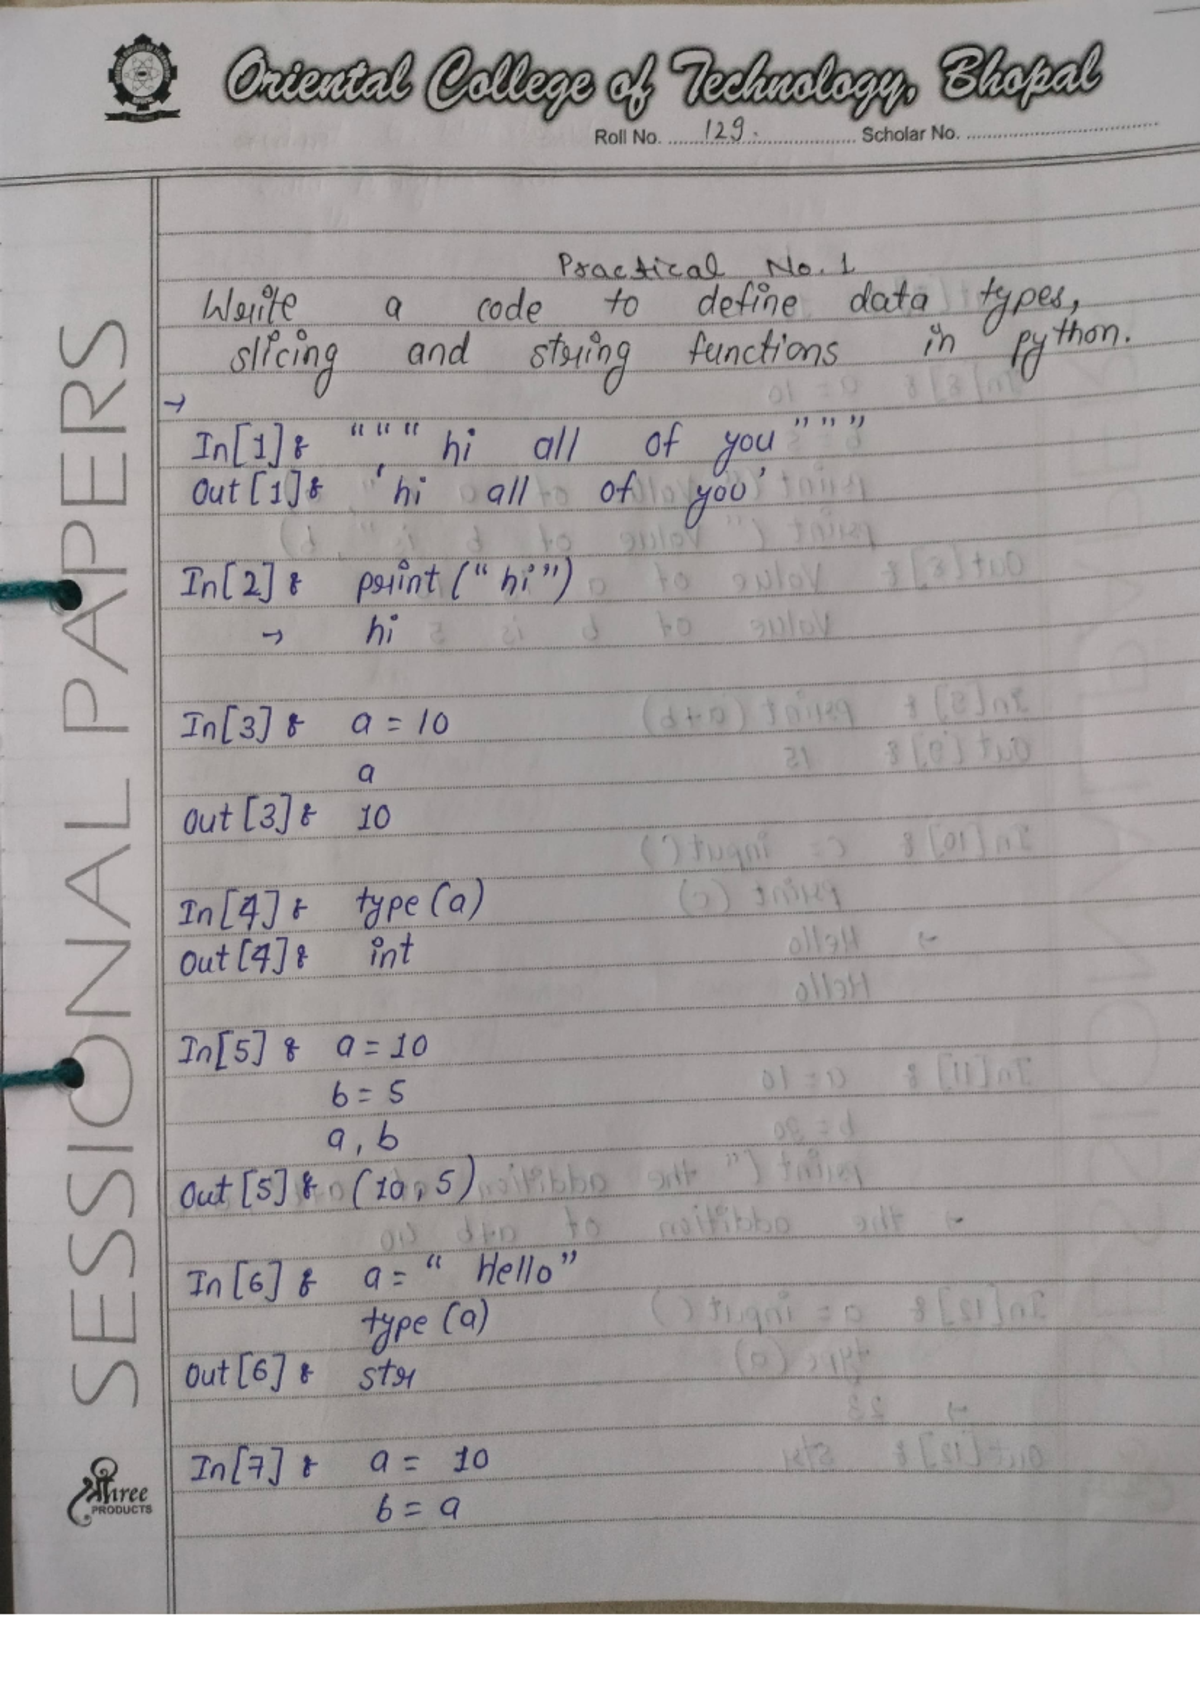 Oriental College of Technology, Bhopal
Roll No. 129. Scholar No.
Practical No. 1
Write a code to define data types,
slicing and string functions in python.
→
In[1]: """ hi all of you """
Out[1]: 'hi all of you'
In[2]: print("hi")
→ hi
In[3]: a = 10
a
Out[3]: 10
In[4]: type(a)
Out[4]: int
In[5]: a = 10
b = 5
a, b
Out[5]: (10, 5)
In[6]: a = " Hello"
type(a)
Out[6]: str
In[7]: a = 10
b = a
SESSIONAL PAPERS
Shree
PRODUCTS